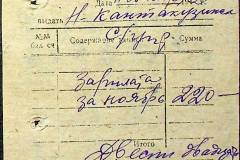 Дата
выдать Н. Кантакузина
№№ бил. сч Содержание Сумма
Зарплата
за ноябрь 220—
Итого
Двести двадца